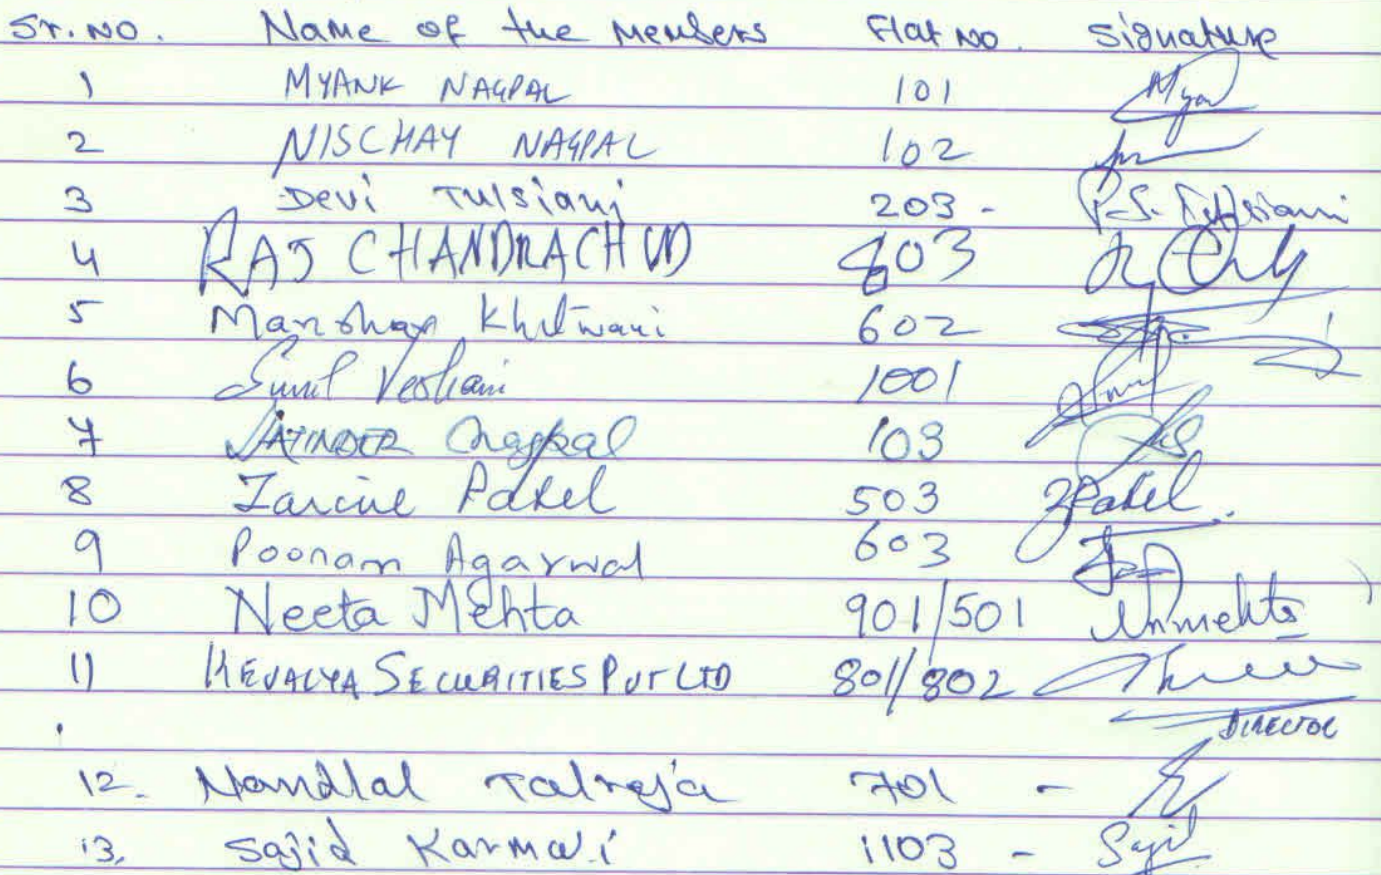 Sr. No. Name of the Members Flat No. Signature
1 MYANK NAGPAL 101 Myan
2 NISCHAY NAGPAL 102
3 Devi Tulsiani 203 - P.S. Tulsiani
4 RAJ CHANDRACHUD 803
5 Manohar Khilwani 602
6 Sunil Veshani 1001
7 JATINDER Nagpal 103
8 Zarine Patel 503 ZPatel.
9 Poonam Agarwal 603
10 Neeta Mehta 901/501 Nnmehta
11 KEVALYA SECURITIES PVT LTD 801/802
DIRECTOR
12. Nandlal Talreja 701 -
13. Sajid Karmali 1103 - Sajid